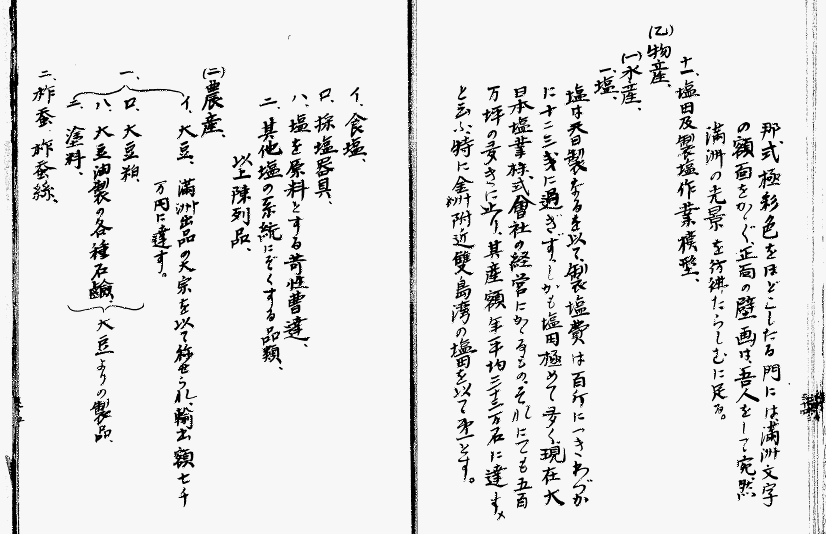 那式極彩色をほどこしたる門には滿洲文字
の額面をかゝぐ、正面の壁画は、吾人をして宛然
滿洲の光景を彷彿たらしむに足る。
十一、塩田及製塩作業模型、
(乙)物産、
(一)水産、
一、塩、
塩は天日製なるを以て、製塩費は百斤につきわづか
に十二三銭に過ぎず、しかも塩田極めて多く、現在大
日本塩業株式會社の経営にかゝるもの、それにても五百
万坪の多きに上り、其産額年平均三十三万石に達す
と云ふ、特に金州附近雙島湾の塩田を以て第一とす。
イ、食塩、
ロ、採塩器具、
ハ、塩を原料とする苛性曹達、
ニ、其他塩の系統にぞくする品類、
以上陳列品、
(二)農産、
イ、大豆、滿洲出品の大宗を以て称せられ、輸出額七千
万円に達す。
一、
ロ、大豆粕、
ハ、大豆油製の各種石鹼、大豆よりの製品、
ニ、塗料、
二、柞蚕、柞蚕絲、